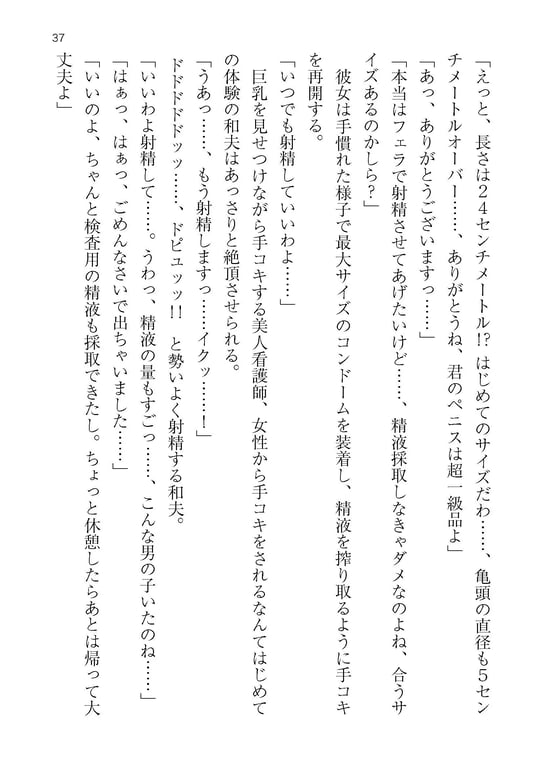 37
「えっと、長さは24センチメートル!? はじめてのサイズだわ……、亀頭の直径も5セン
チメートルオーバー……、ありがとうね、君のペニスは超一級品よ」
「あっ、ありがとうございますっ……」
「本当はフェラで射精させてあげたいけど……、精液採取しなきゃダメなのよね、合うサ
イズあるのかしら?」
彼女は手慣れた様子で最大サイズのコンドームを装着し、精液を搾り取るように手コキ
を再開する。
「いつでも射精していいわよ……」
巨乳を見せつけながら手コキする美人看護師、女性から手コキをされるなんてはじめて
の体験の和夫はあっさりと絶頂させられる。
「うあっ……、もう射精しますっ……イクッ……!」
ドドドドドッッ……、ドピュッッ!! と勢いよく射精する和夫。
「いいわよ射精して……。うわっ、精液の量もすごっ……、こんな男の子いたのね……」
「はぁっ、はぁっ、ごめんなさいで出ちゃいました……」
「いいのよ、ちゃんと検査用の精液も採取できたし。ちょっと休憩したらあとは帰って大
丈夫よ」